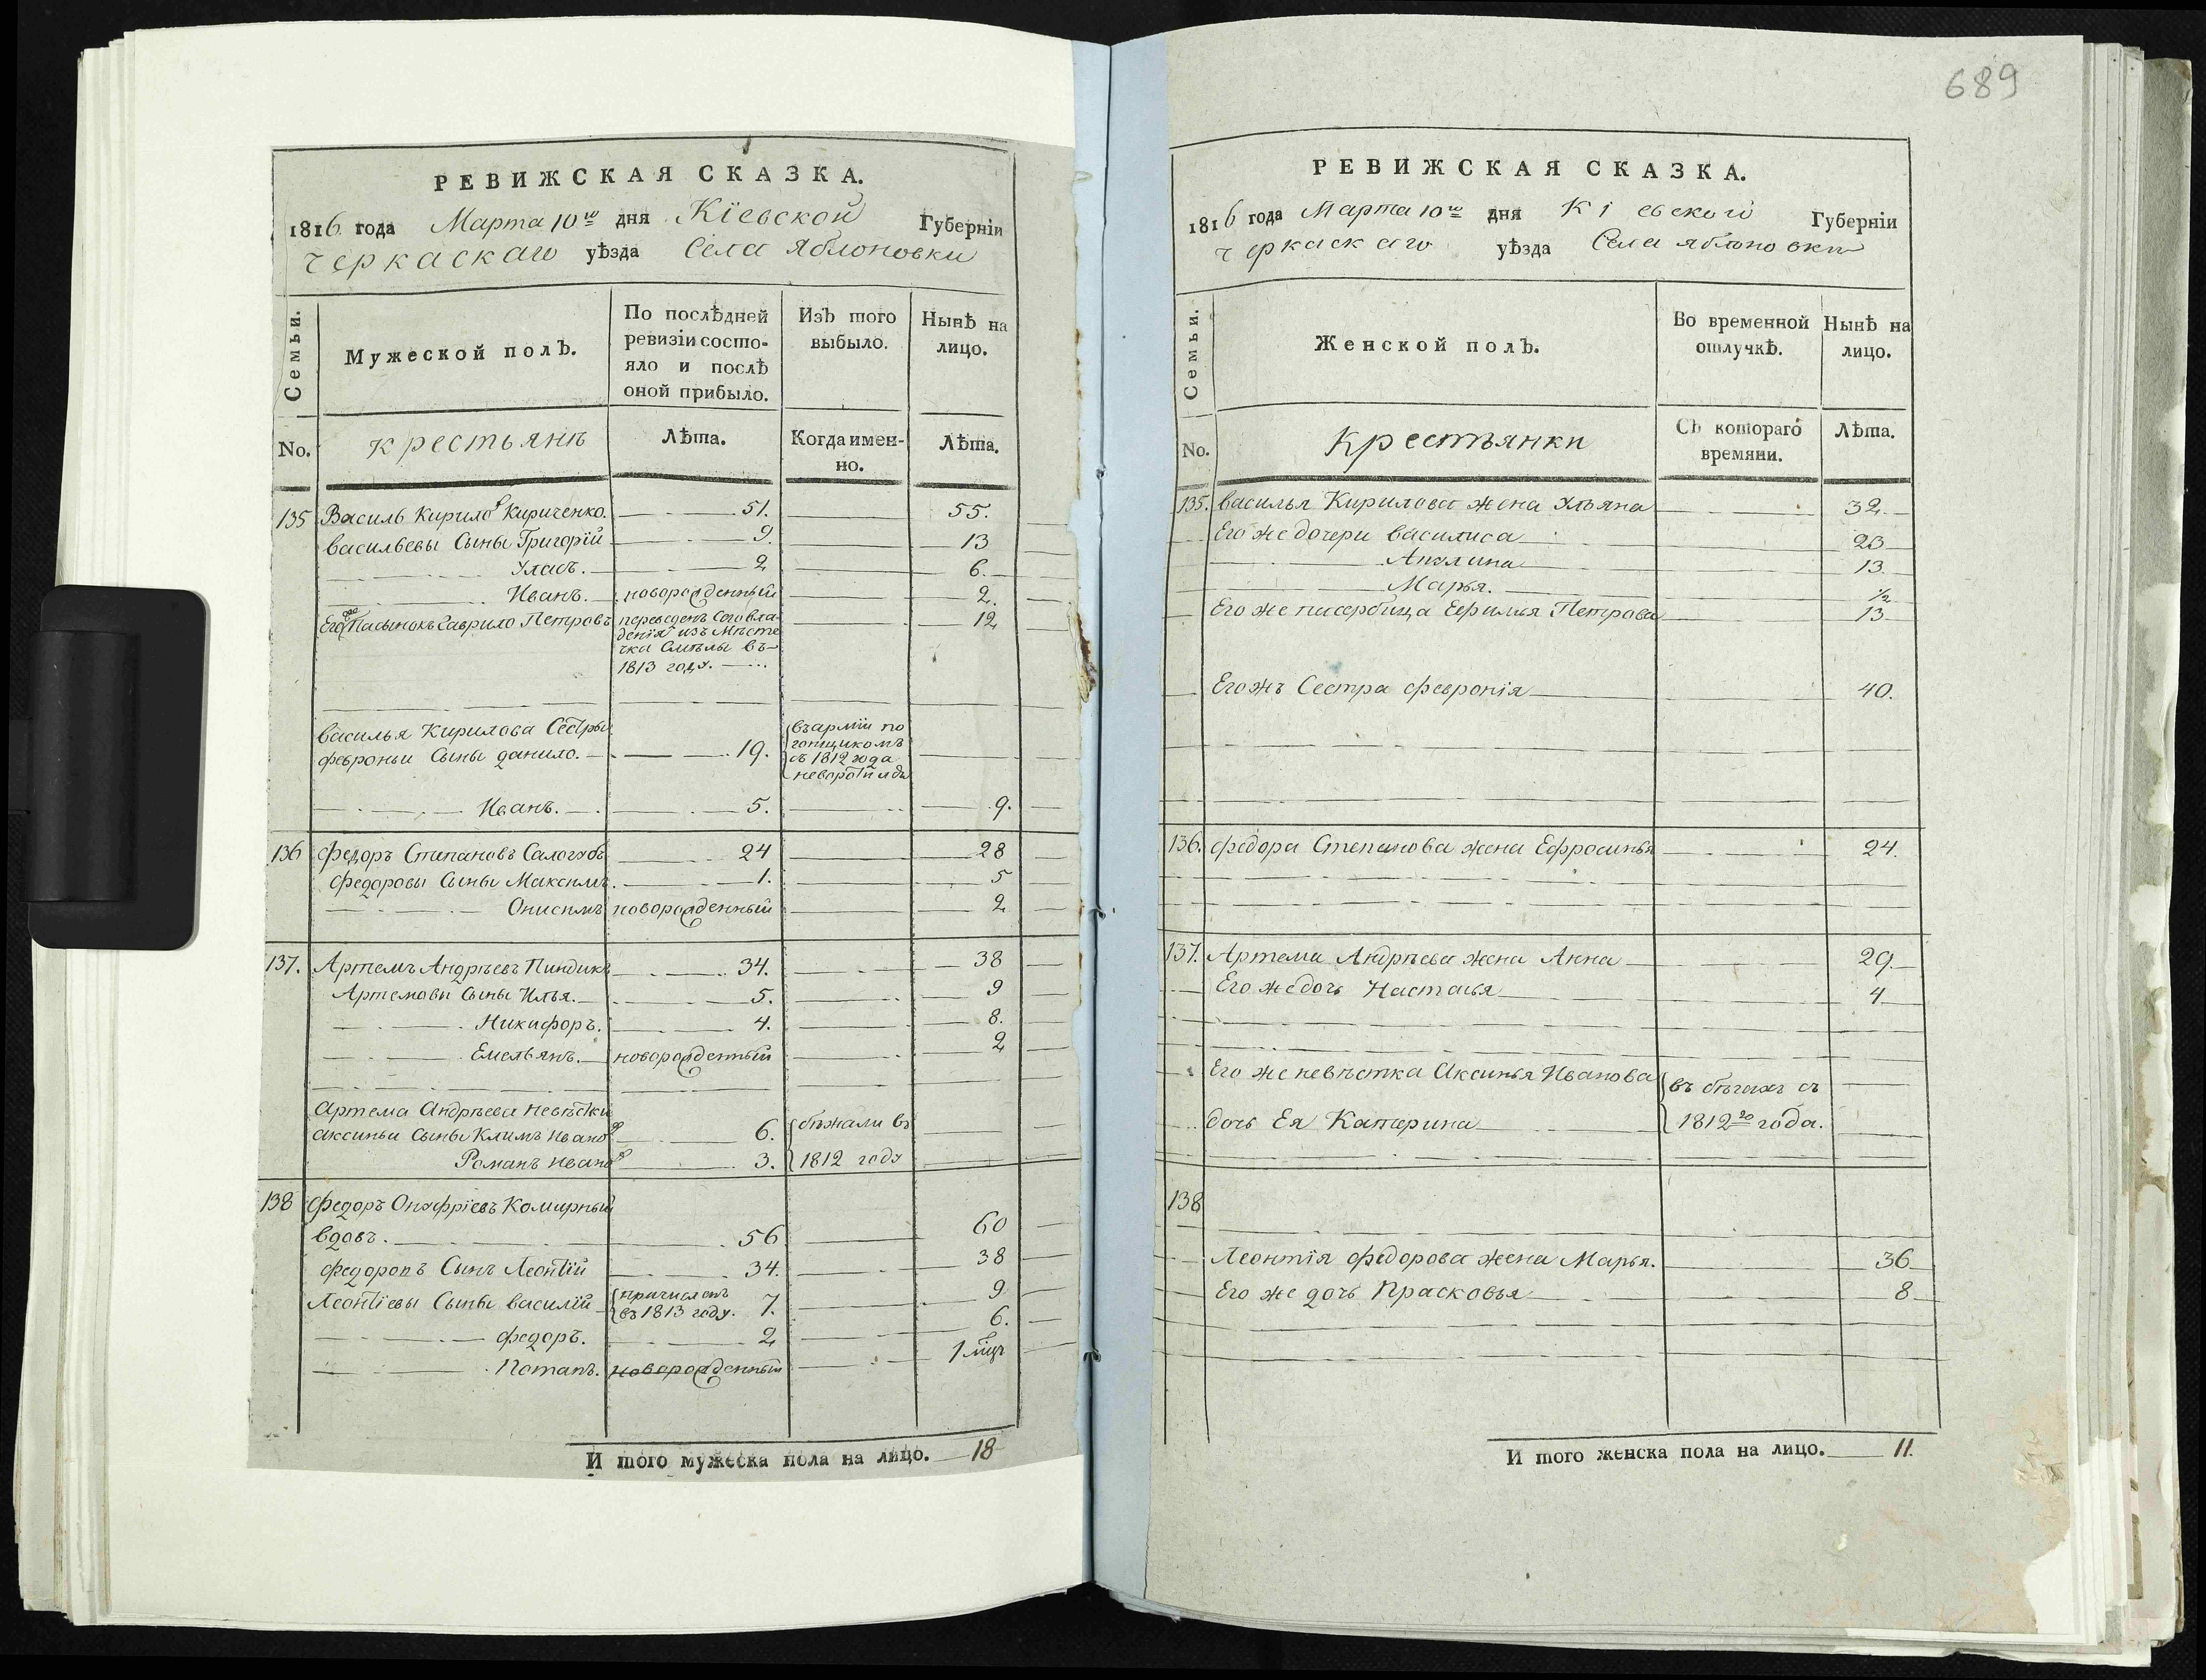 РЕВИЖСКАЯ СКАЗКА.
1816 года Марта 10го дня Кіевской Губерніи
Черкаскаго уѣзда Села Яблоновки
Семьи.
Мужеской полъ.
По послѣдней ревизіи состояло и послѣ оной прибыло.
Изъ того выбыло.
Нынѣ на лицо.
No. крестьянѣ Лѣта. Когда именно. Лѣта.
135 Василь Кирилов Кириченко. 51. 55.
Васильевы Сыны Григорій 9. 13
Уласъ. 2 6.
Иванъ. новорожденный 2.
Его же Пасынокъ Гаврило Петровъ переведенъ Сего вла- 12
денія изъ Мѣсте
чка Смѣлы въ
1813 году.
Василья Кирилова Сестры въ арміи по
февроньи Сыны данило. 19. гонщикомъ
съ 1812 года
неворотился
Иванъ. 5. 9.
136 Федоръ Степановъ Салогубъ 24 28
Федоровы Сыны Максимъ. 1. 5
Онисимъ новорожденный 2
137. Артемъ Андрѣевъ Пиндикъ 34. 38
Артемовы Сыны Илья. 5. 9
Никифоръ. 4. 8.
Емельянъ. новорожденный 2
Артема Андрѣева невѣстки
аксиньи Сыны Климъ Иванов 6. бѣжали въ
Романъ Иванов 3. 1812 году
138 Федоръ Онуфріевъ Комирный
вдовъ. 56 60
федоровъ Сынъ Леонтій 34. 38
Леонтіевы Сыны василій причисленъ въ 1813 году. 7. 9
федоръ. 2 6.
Потапъ. новорожденный 1 мцъ
И того мужеска пола на лицо. 18
689
РЕВИЖСКАЯ СКАЗКА.
1816 года Марта 10го дня Кіевской Губерніи
Черкаскаго уѣзда Села Яблоновки
Семьи.
Женской полъ.
Во временной отлучкѣ.
Нынѣ на лицо.
No. Крестьянки Съ котораго времяни. Лѣта.
135. Василья Кирилова жена Ульяна 32.
Его же дочери Василиса 23
Акулина 13.
Марья. 1/2
Его же пасербица Ефимья Петрова 13
Егожъ Сестра февронія 40.
136. Федора Степанова жена Ефросинья 24.
137. Артема Андрѣева жена Анна 29.
Его же дочь Настасья 4
Его же невѣстка Аксинья Иванова въ бѣгахъ съ
дочь Ея Катерина 1812го года.
138
Леонтія Федорова жена Марья. 36
Его же дочь Прасковья 8
И того женска пола на лицо. 11.